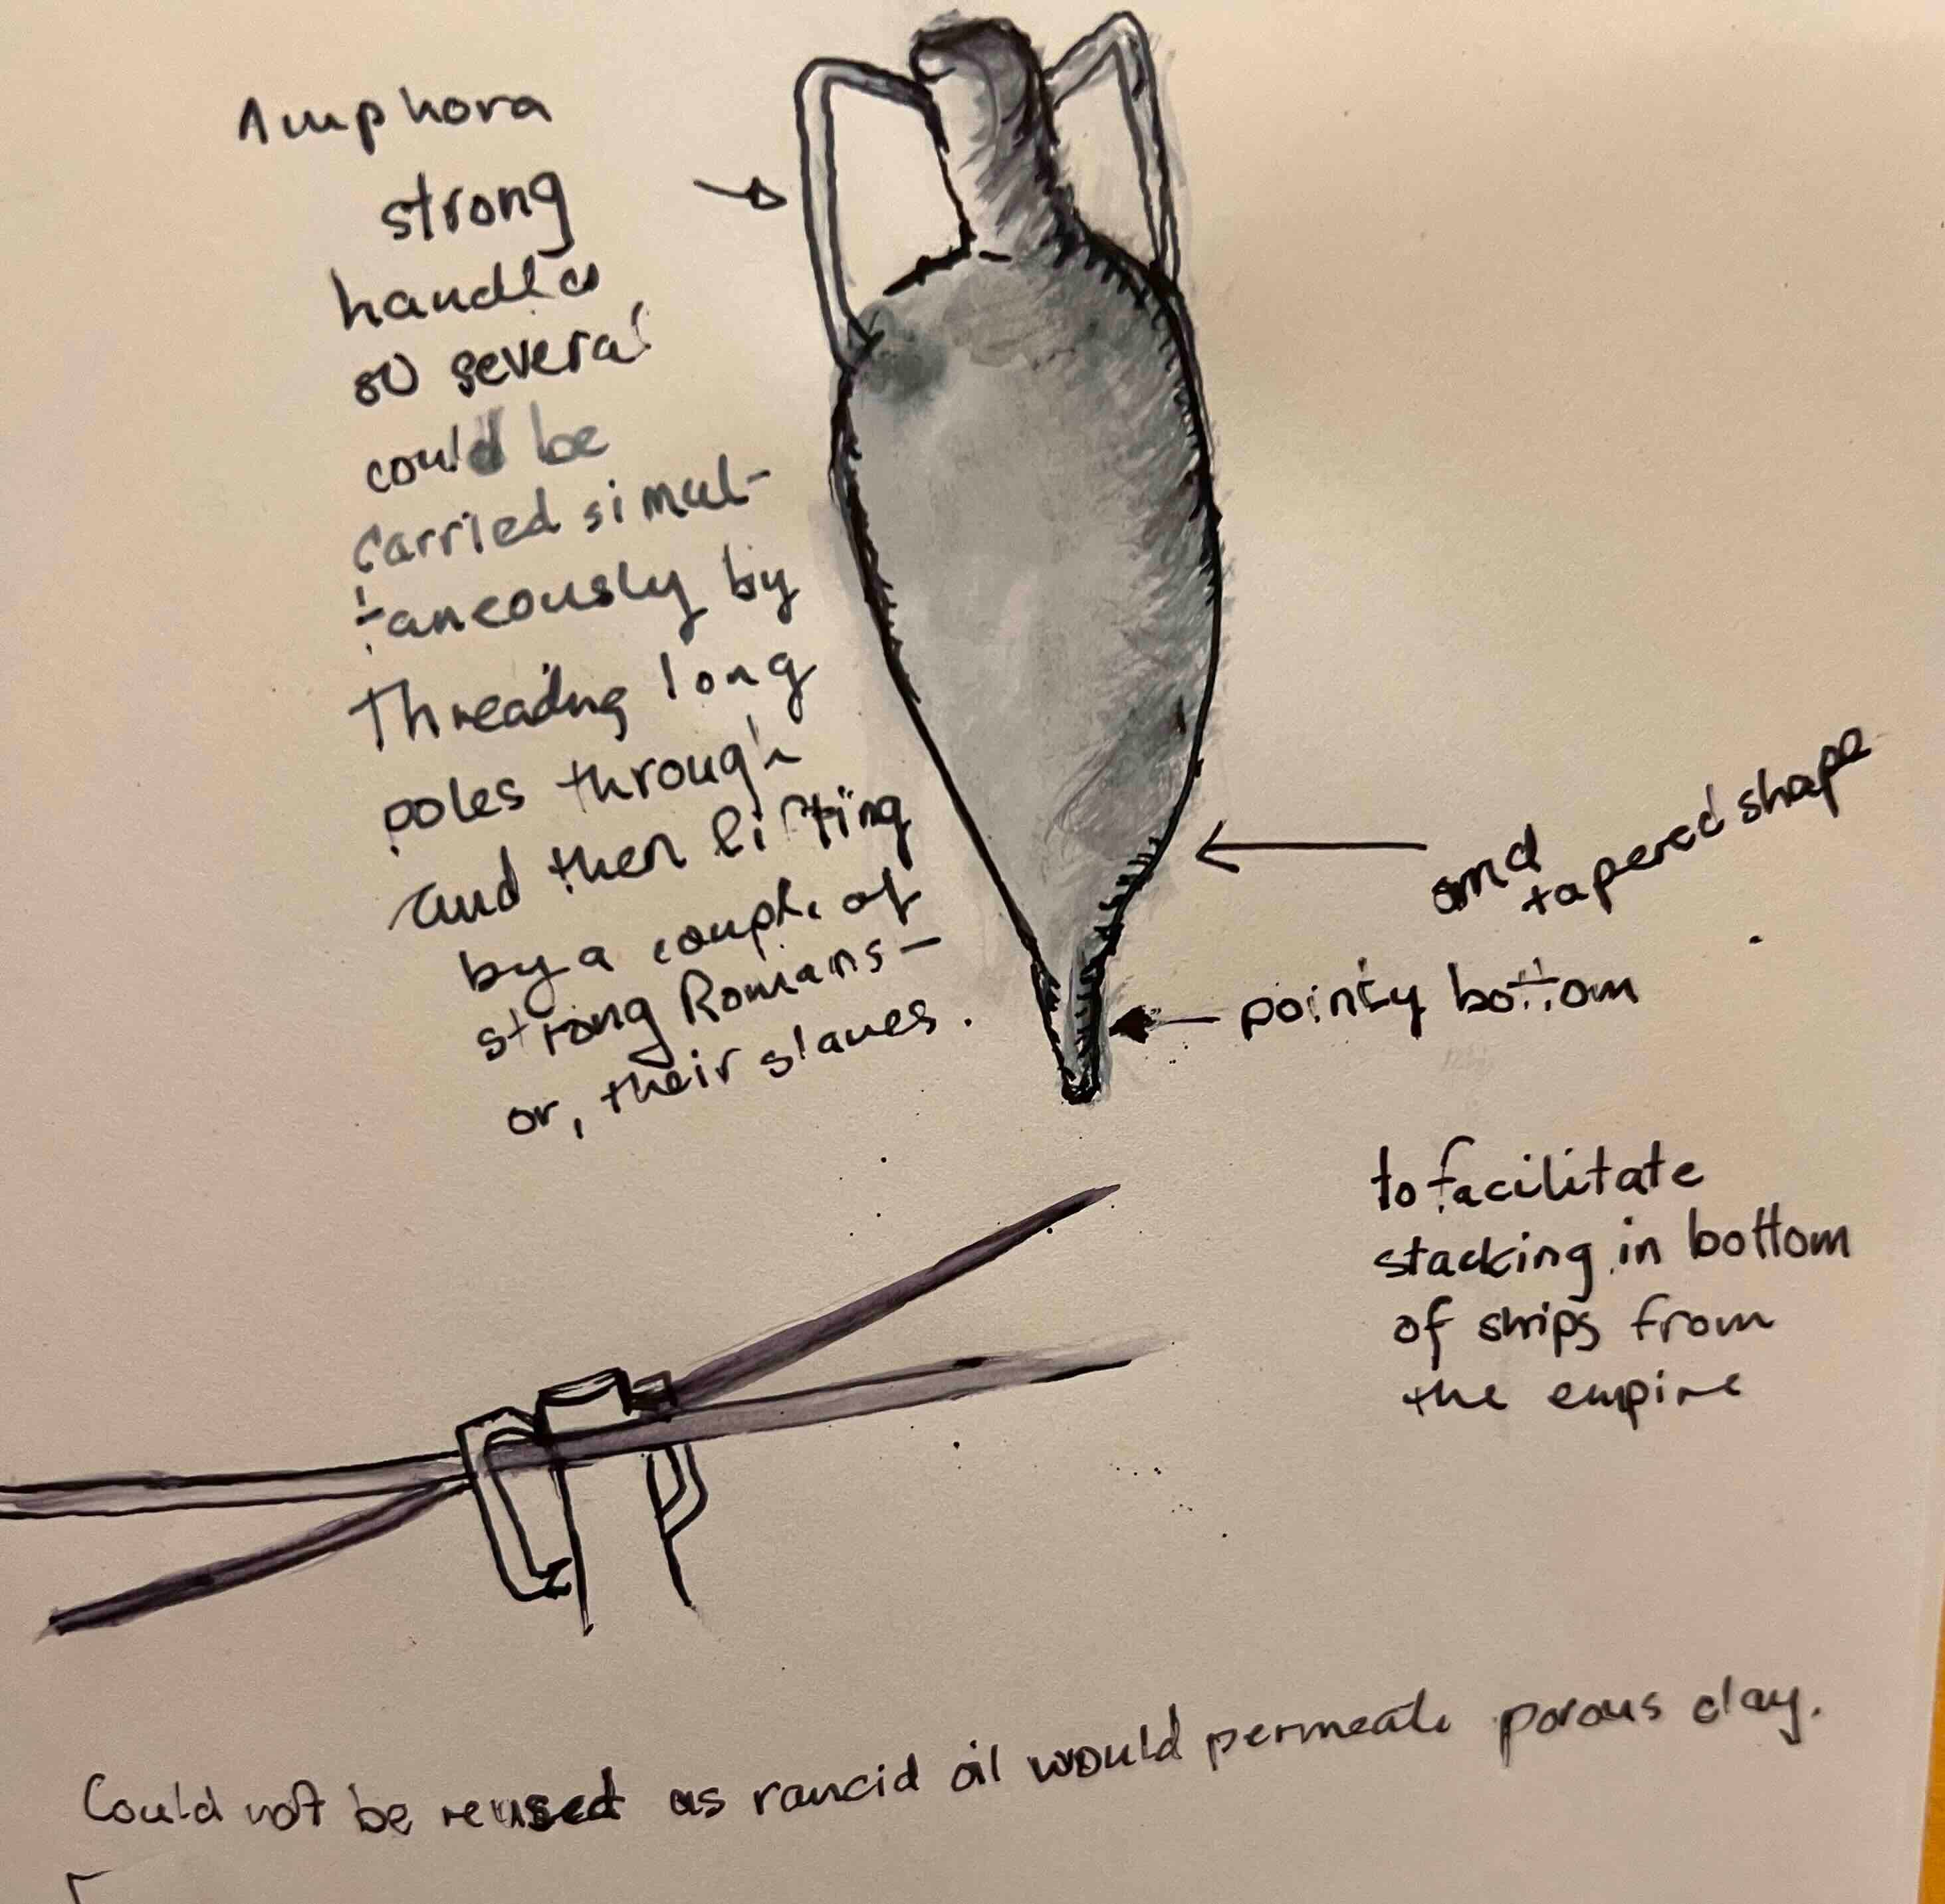 Amphora
strong
handles
so several
could be
carried simul-
taneously by
Threading long
poles through
and then lifting
by a couple of
strong Romans-
or, their slaves.
and
tapered shape
pointy bottom
to facilitate
stacking in bottom
of ships from
the empire
Could not be reused as rancid oil would permeate porous clay.